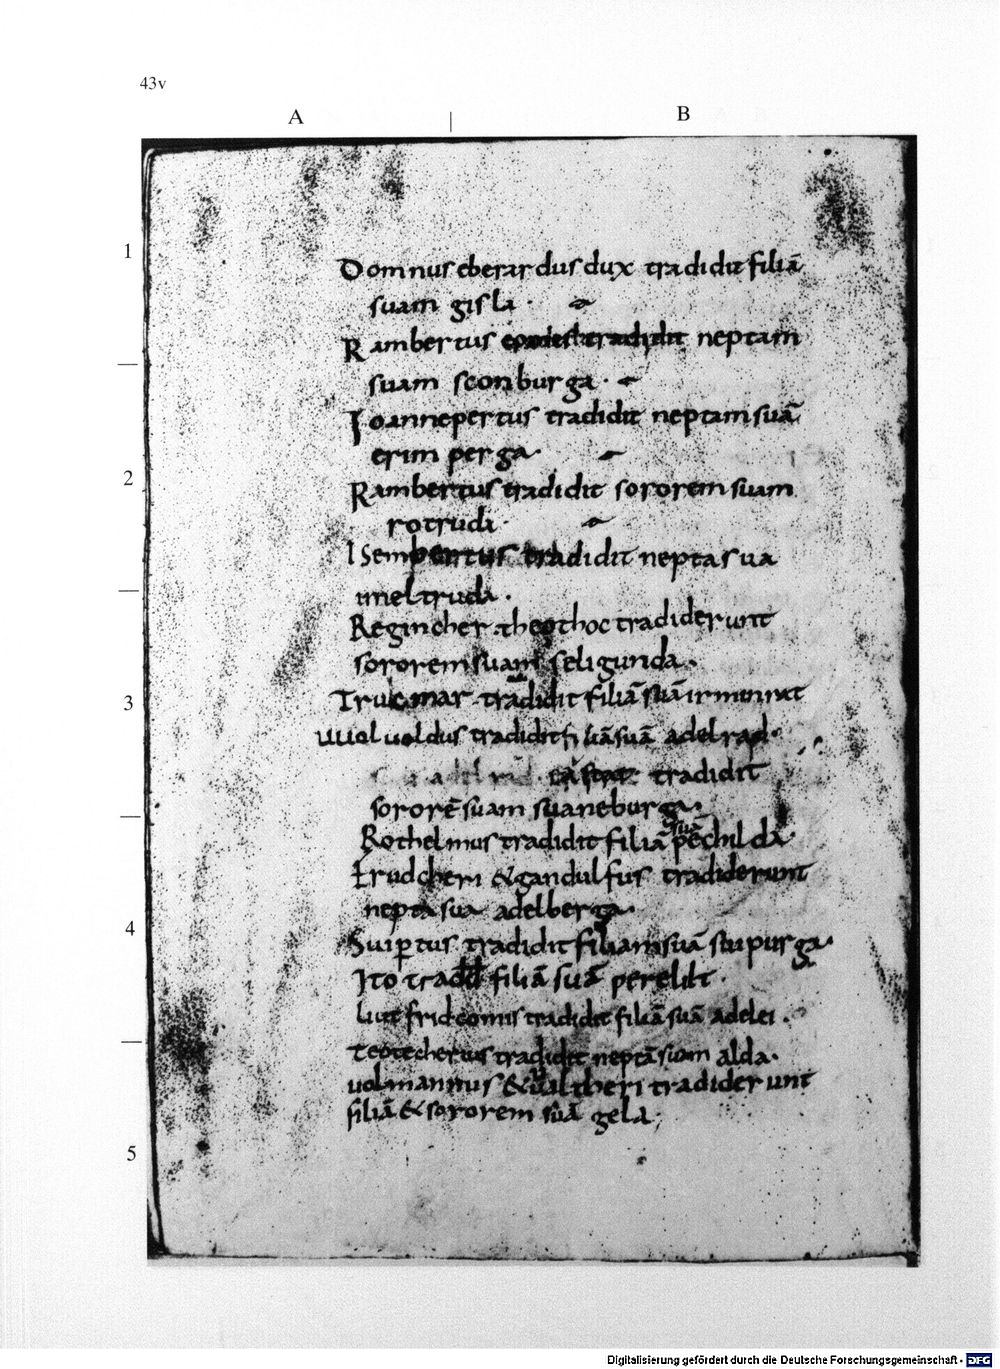 43v
A | B
1
Domnus eberardus dux tradidit filiā
suam gisla ·
Rambertus tradidit neptam
suam sconburga ·
2
Ioannepertus tradidit neptam suā
erimperga ·
Rambertus tradidit sororem suam
rotruda ·
Isembertus tradidit nepta sua
imeltruda ·
Regincher · theothoc tradiderunt
sororem suam seligunda ·
3
tradidit filiā suā irminrat
uuoluoldus tradidit filiā suā adelrad ·
tradidit
sororē suam suaneburga ·
Rothelmus tradidit filiā suā pechilda ·
Erudcheri & gandulfus tradiderunt
nepta sua adelberga ·
4
tradidit filiam suā
Ito filiā suā
liutfrid comis tradidit filiā suā adelei ·
Teotechertus tradidit neptā suam alda ·
uolmannus & ualtheri tradiderunt
filiā & sororem suā gela ;
5
Digitalisierung gefördert durch die Deutsche Forschungsgemeinschaft - DFG